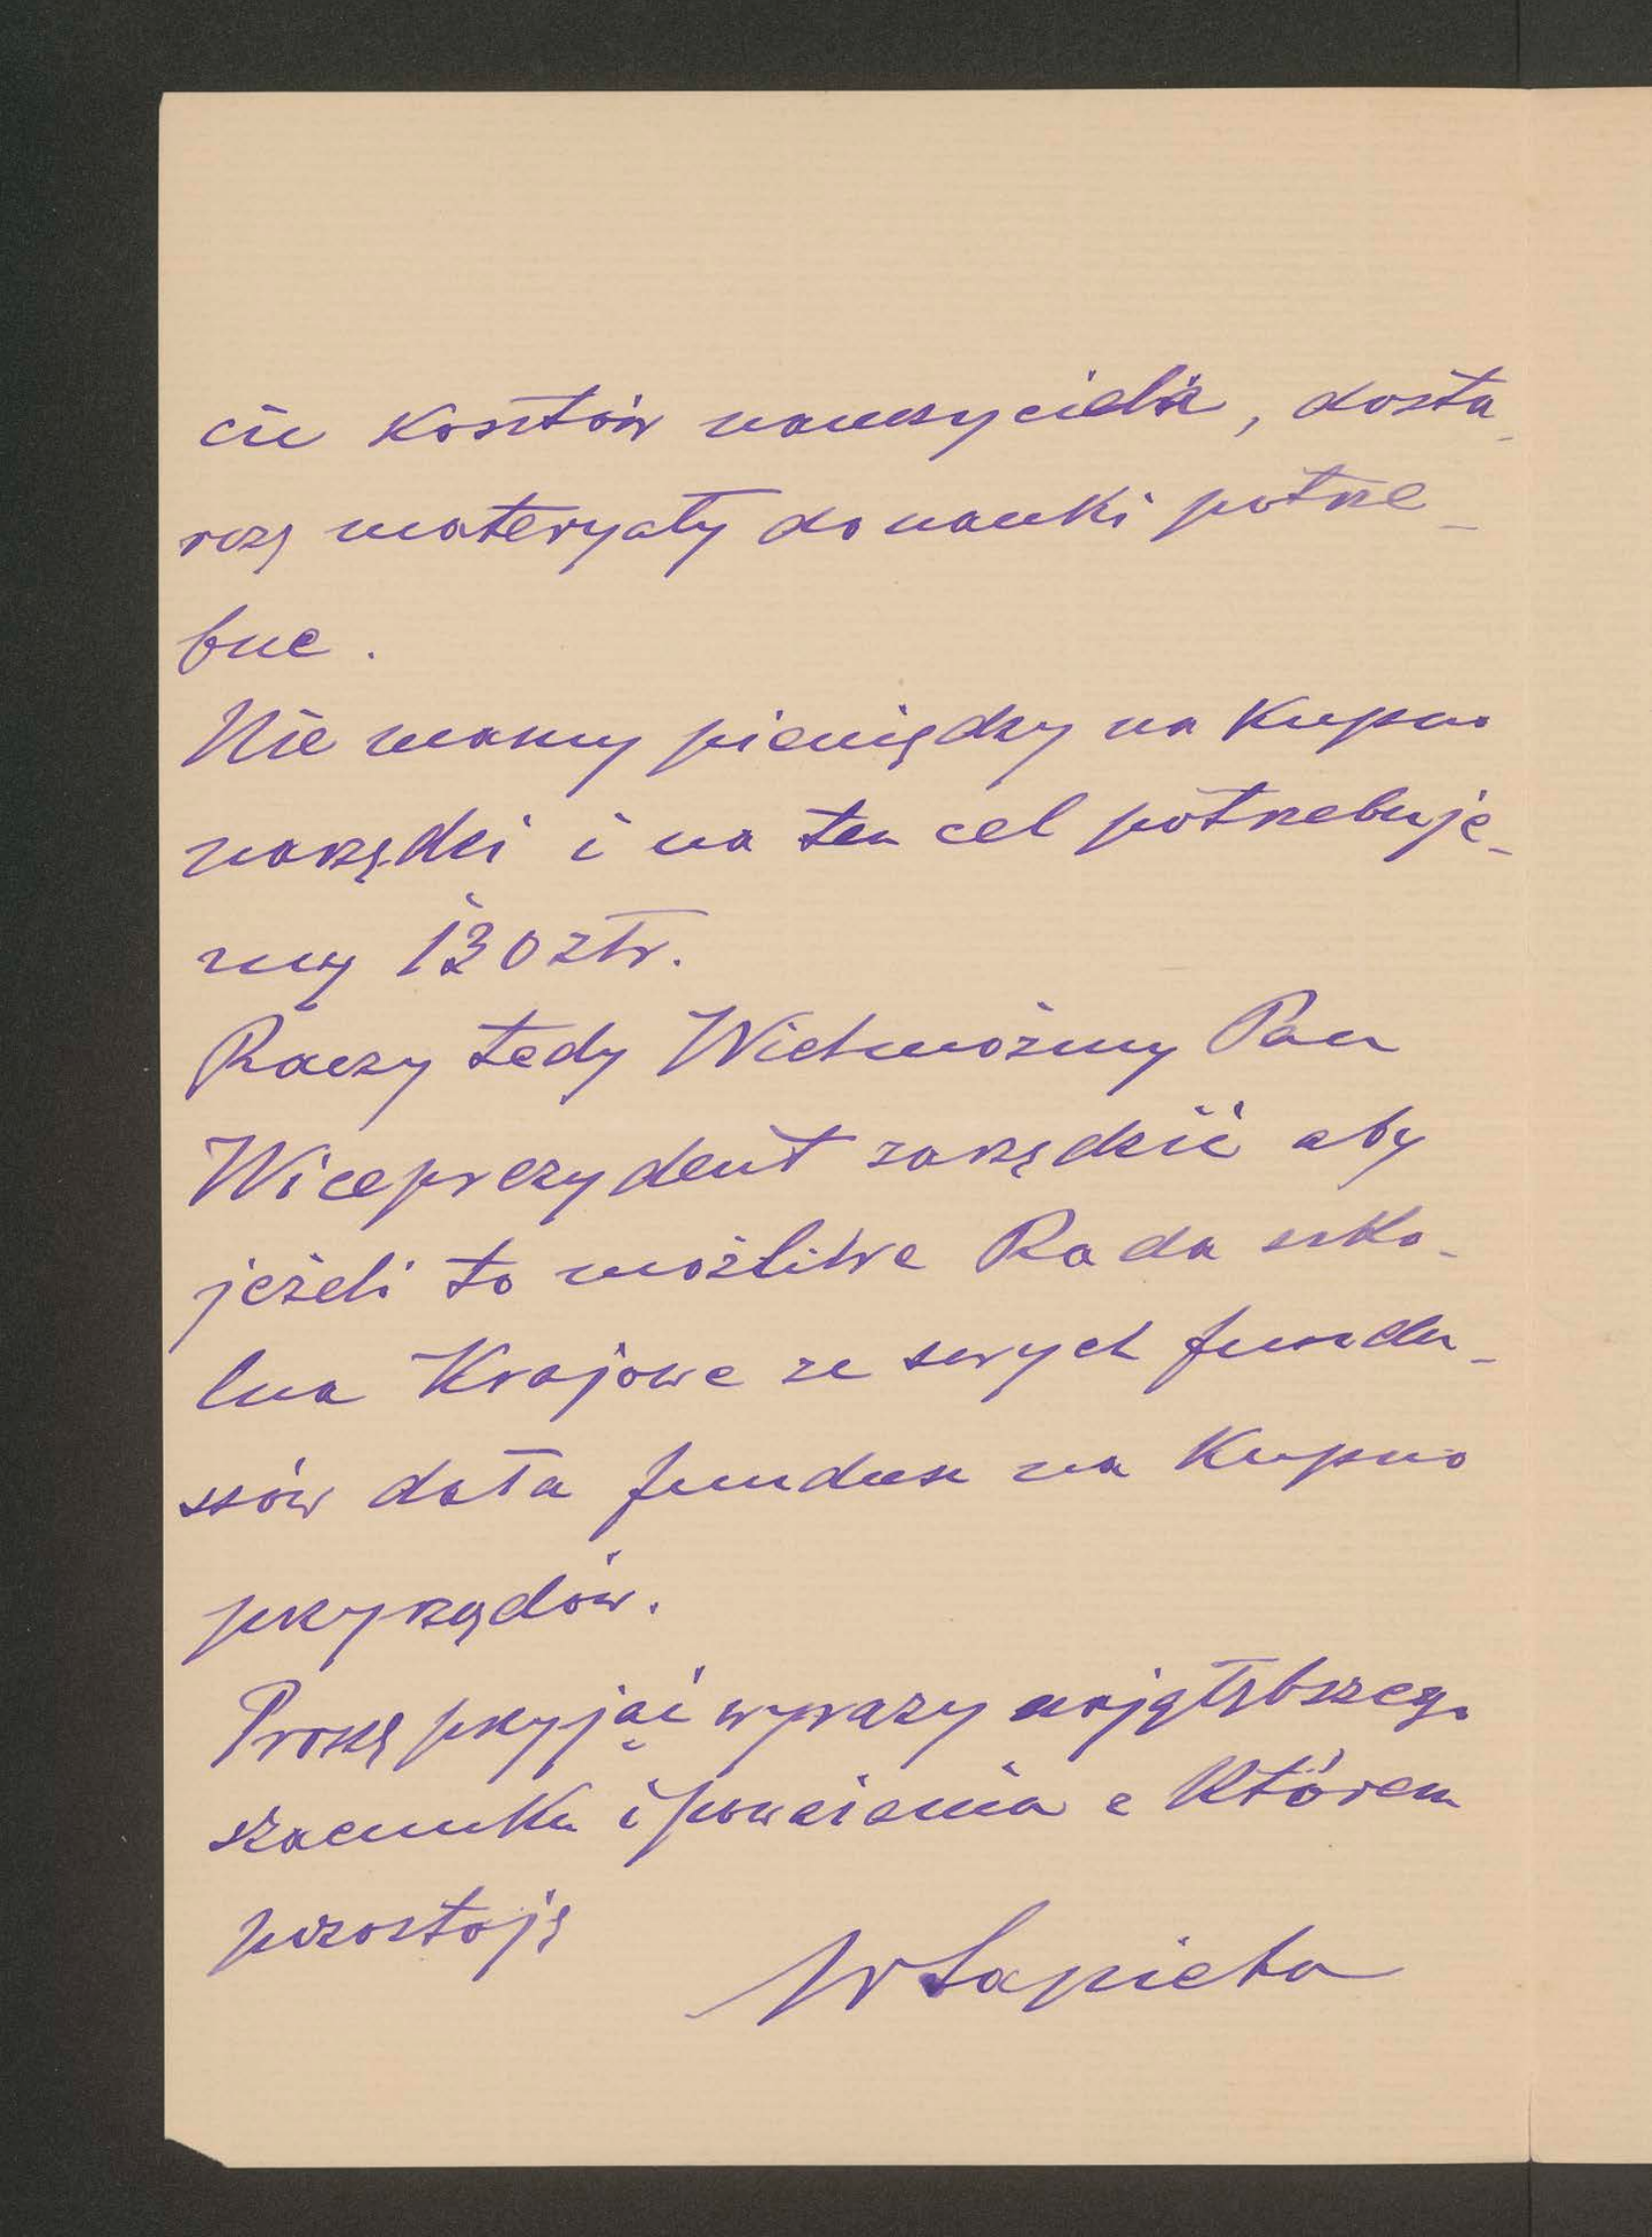 cie kosztów nauczyciela, dosta-
rczą materyały do nauki potrze-
bne.
Nie mamy pieniędzy na kupno
narzędzi i na ten cel potrzebuje-
my 130 złr.
Raczy tedy Wielmożny Pan
Wiceprezydent zarządzić aby
jeżeli to możliwe Rada szko-
lna Krajowa ze swych fundu-
szów dała fundusz na kupno
przyrządów.
Proszę przyjąć wyrazy najgłębszego
szacunku i poważania z którem
pozostaję
WSapieha